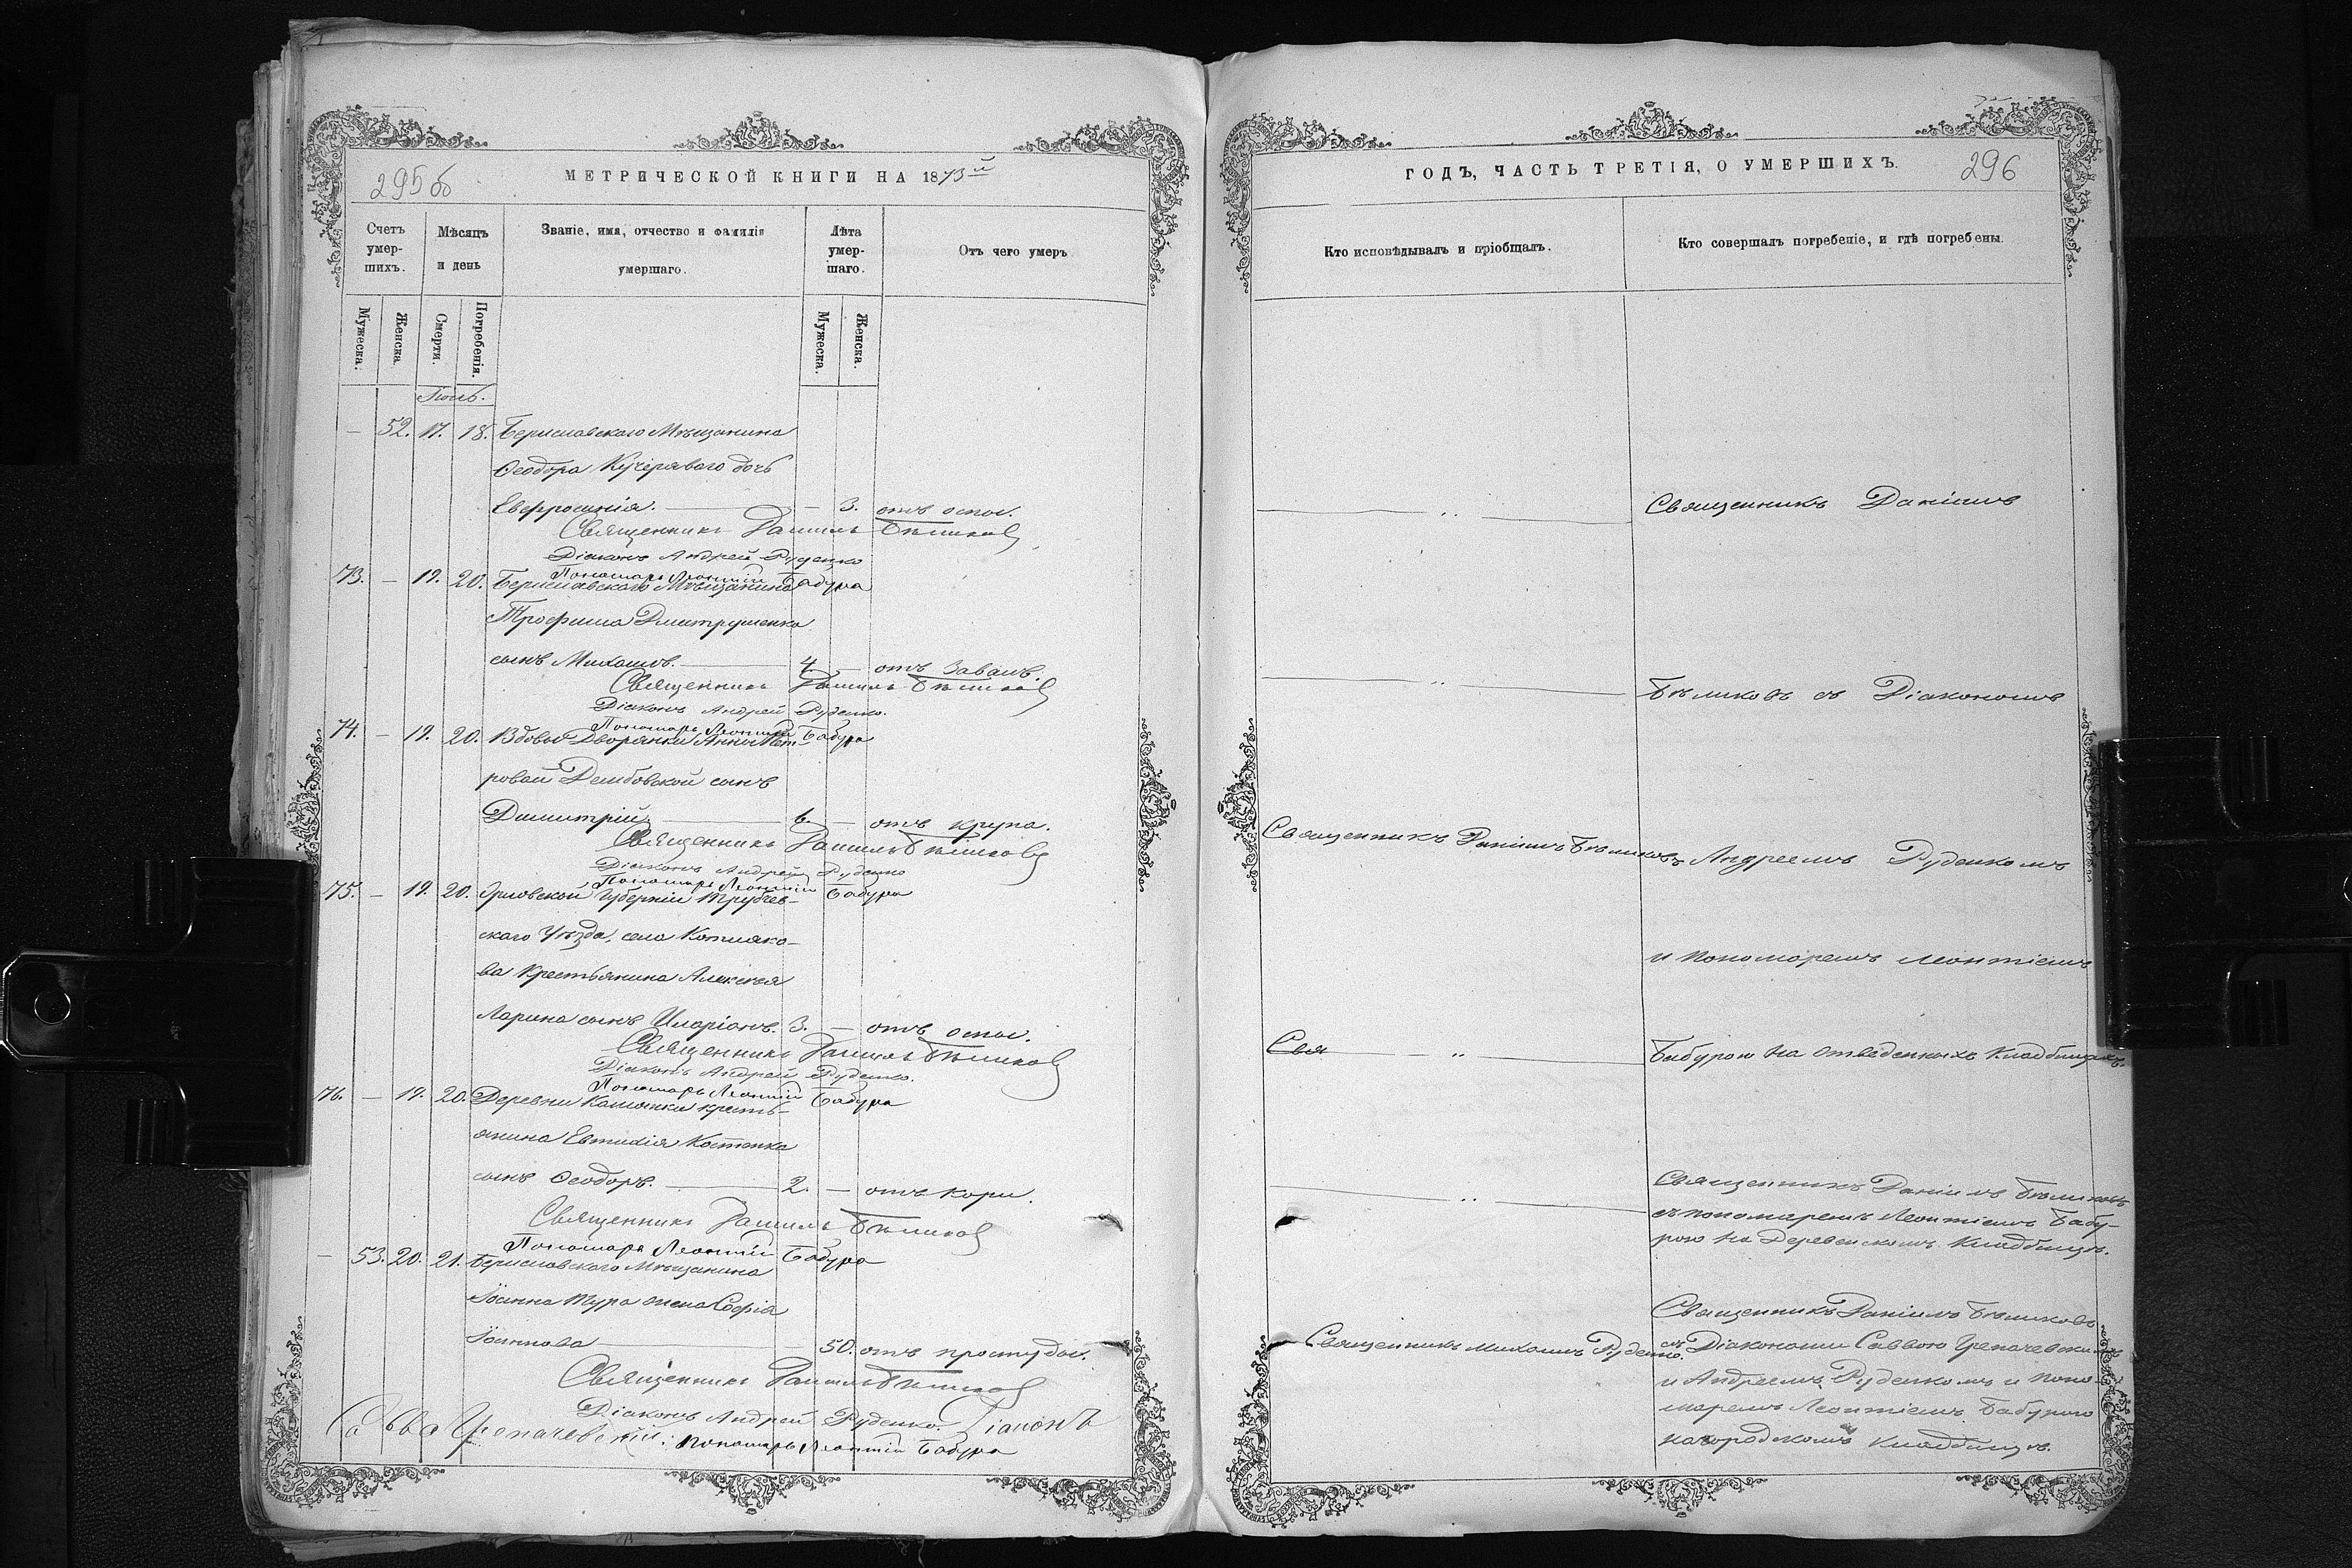 295об
МЕТРИЧЕСКОЙ КНИГИ НА 1873й
Счетъ умер-шихъ.
Мѣсяцъ и день
Званіе, имя, отчество и фамилія умершаго.
Лѣта умер-шаго.
Отъ чего умеръ
Мужеска.
Женска.
Смерти.
Погребенія.
Мужеска.
Женска.
— 52. 17. 18. Бериславскаго Мѣщанина
Ѳеодора Кучеряваго дочь
Евфросинія. — 3. отъ оспы.
Священникъ Даніилъ Бѣликовъ
Діаконъ Андрей Руденко
Пономарь Леонтій Бабура
73. — 19. 20. Бериславскаго Мѣщанина
Трофима Дмитрушенка
сынъ Михаилъ. 4 — отъ Завалъ.
Священникъ Даніилъ Бѣликовъ
Діаконъ Андрей Руденко.
Пономарь Леонтій Бабура
74. — 19. 20. Вдовы Дворянки Анны Пет-
ровой Дембовской сынъ
Димитрій 6 — отъ крупа.
Священникъ Даніилъ Бѣликовъ
Діаконъ Андрей Руденко
Пономарь Леонтій Бабура
75. — 19. 20. Орловской Губерніи Трубчев-
скаго Уѣзда, села Котляко-
ва Крестьянина Алексѣя
Ларина сынъ Иларіонъ. 3. — отъ оспы.
Священникъ Даніилъ Бѣликовъ
Діаконъ Андрей Руденко.
Пономарь Леонтій Бабура
76. — 19. 20. Деревни Каменки кресть-
янина Евтихія Костенка
сынъ Ѳеодоръ. 2. — отъ кори.
Священникъ Даніилъ Бѣликовъ
Пономарь Леонтій Бабура
— 53. 20. 21. Бериславскаго Мѣщанина
Іоанна Тура жена Софія
Іоаннова 50. отъ простуды.
Священникъ Даніилъ Бѣликовъ
Діаконъ Андрей Руденко. Діаконъ
Савва Грепачевскій. Пономарь Леонтій Бабура
ГОДЪ, ЧАСТЬ ТРЕТІЯ, О УМЕРШИХЪ.
296
Кто исповѣдывалъ и пріобщалъ.
Кто совершалъ погребеніе, и гдѣ погребены.
Священникъ Даніилъ
Бѣликовъ съ Діакономъ
Священникъ Даніилъ Бѣликовъ
Андреемъ Руденкомъ
и пономаремъ Леонтіемъ
Свя
Бабурою на отведенныхъ кладбищахъ.
Священникъ Даніилъ Бѣликовъ
съ пономаремъ Леонтіемъ Бабу-
рою на Деревенскомъ кладбищѣ.
Священникъ Михаилъ Руденко.
Священникъ Даніилъ Бѣликовъ
съ Діаконами Саввою Грепачевскимъ
и Андреемъ Руденкомъ и поно-
маремъ Леонтіемъ Бабурою
на городскомъ кладбищѣ.